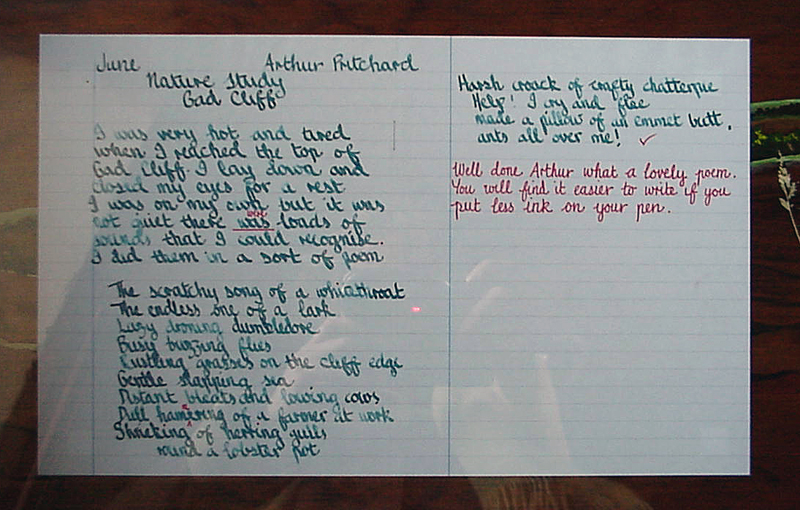 June Arthur Pritchard
Nature Study
Gad Cliff
I was very hot and tired
when I reached the top of
Gad Cliff. I lay down and
closed my eyes for a rest
I was on my own but it was
not quiet there was loads of
were
sounds that I could recognise.
I did them in a sort of poem
The scratchy song of a whitethroat
The endless one of a lark
Lazy droning dumbledore
Busy buzzing flies
Rustling grasses on the cliff edge
Gentle slapping sea
Distant bleats and lowing cows
Dull hamering of a farmer at work
Shrieking of herring gulls
round a lobster pot
Harsh croack of empty chatterpie
Help! I cry and flee
made a pillow of an emmet butt,
ants all over me! ✓
Well done Arthur what a lovely poem.
You will find it easier to write if you
put less ink on your pen.